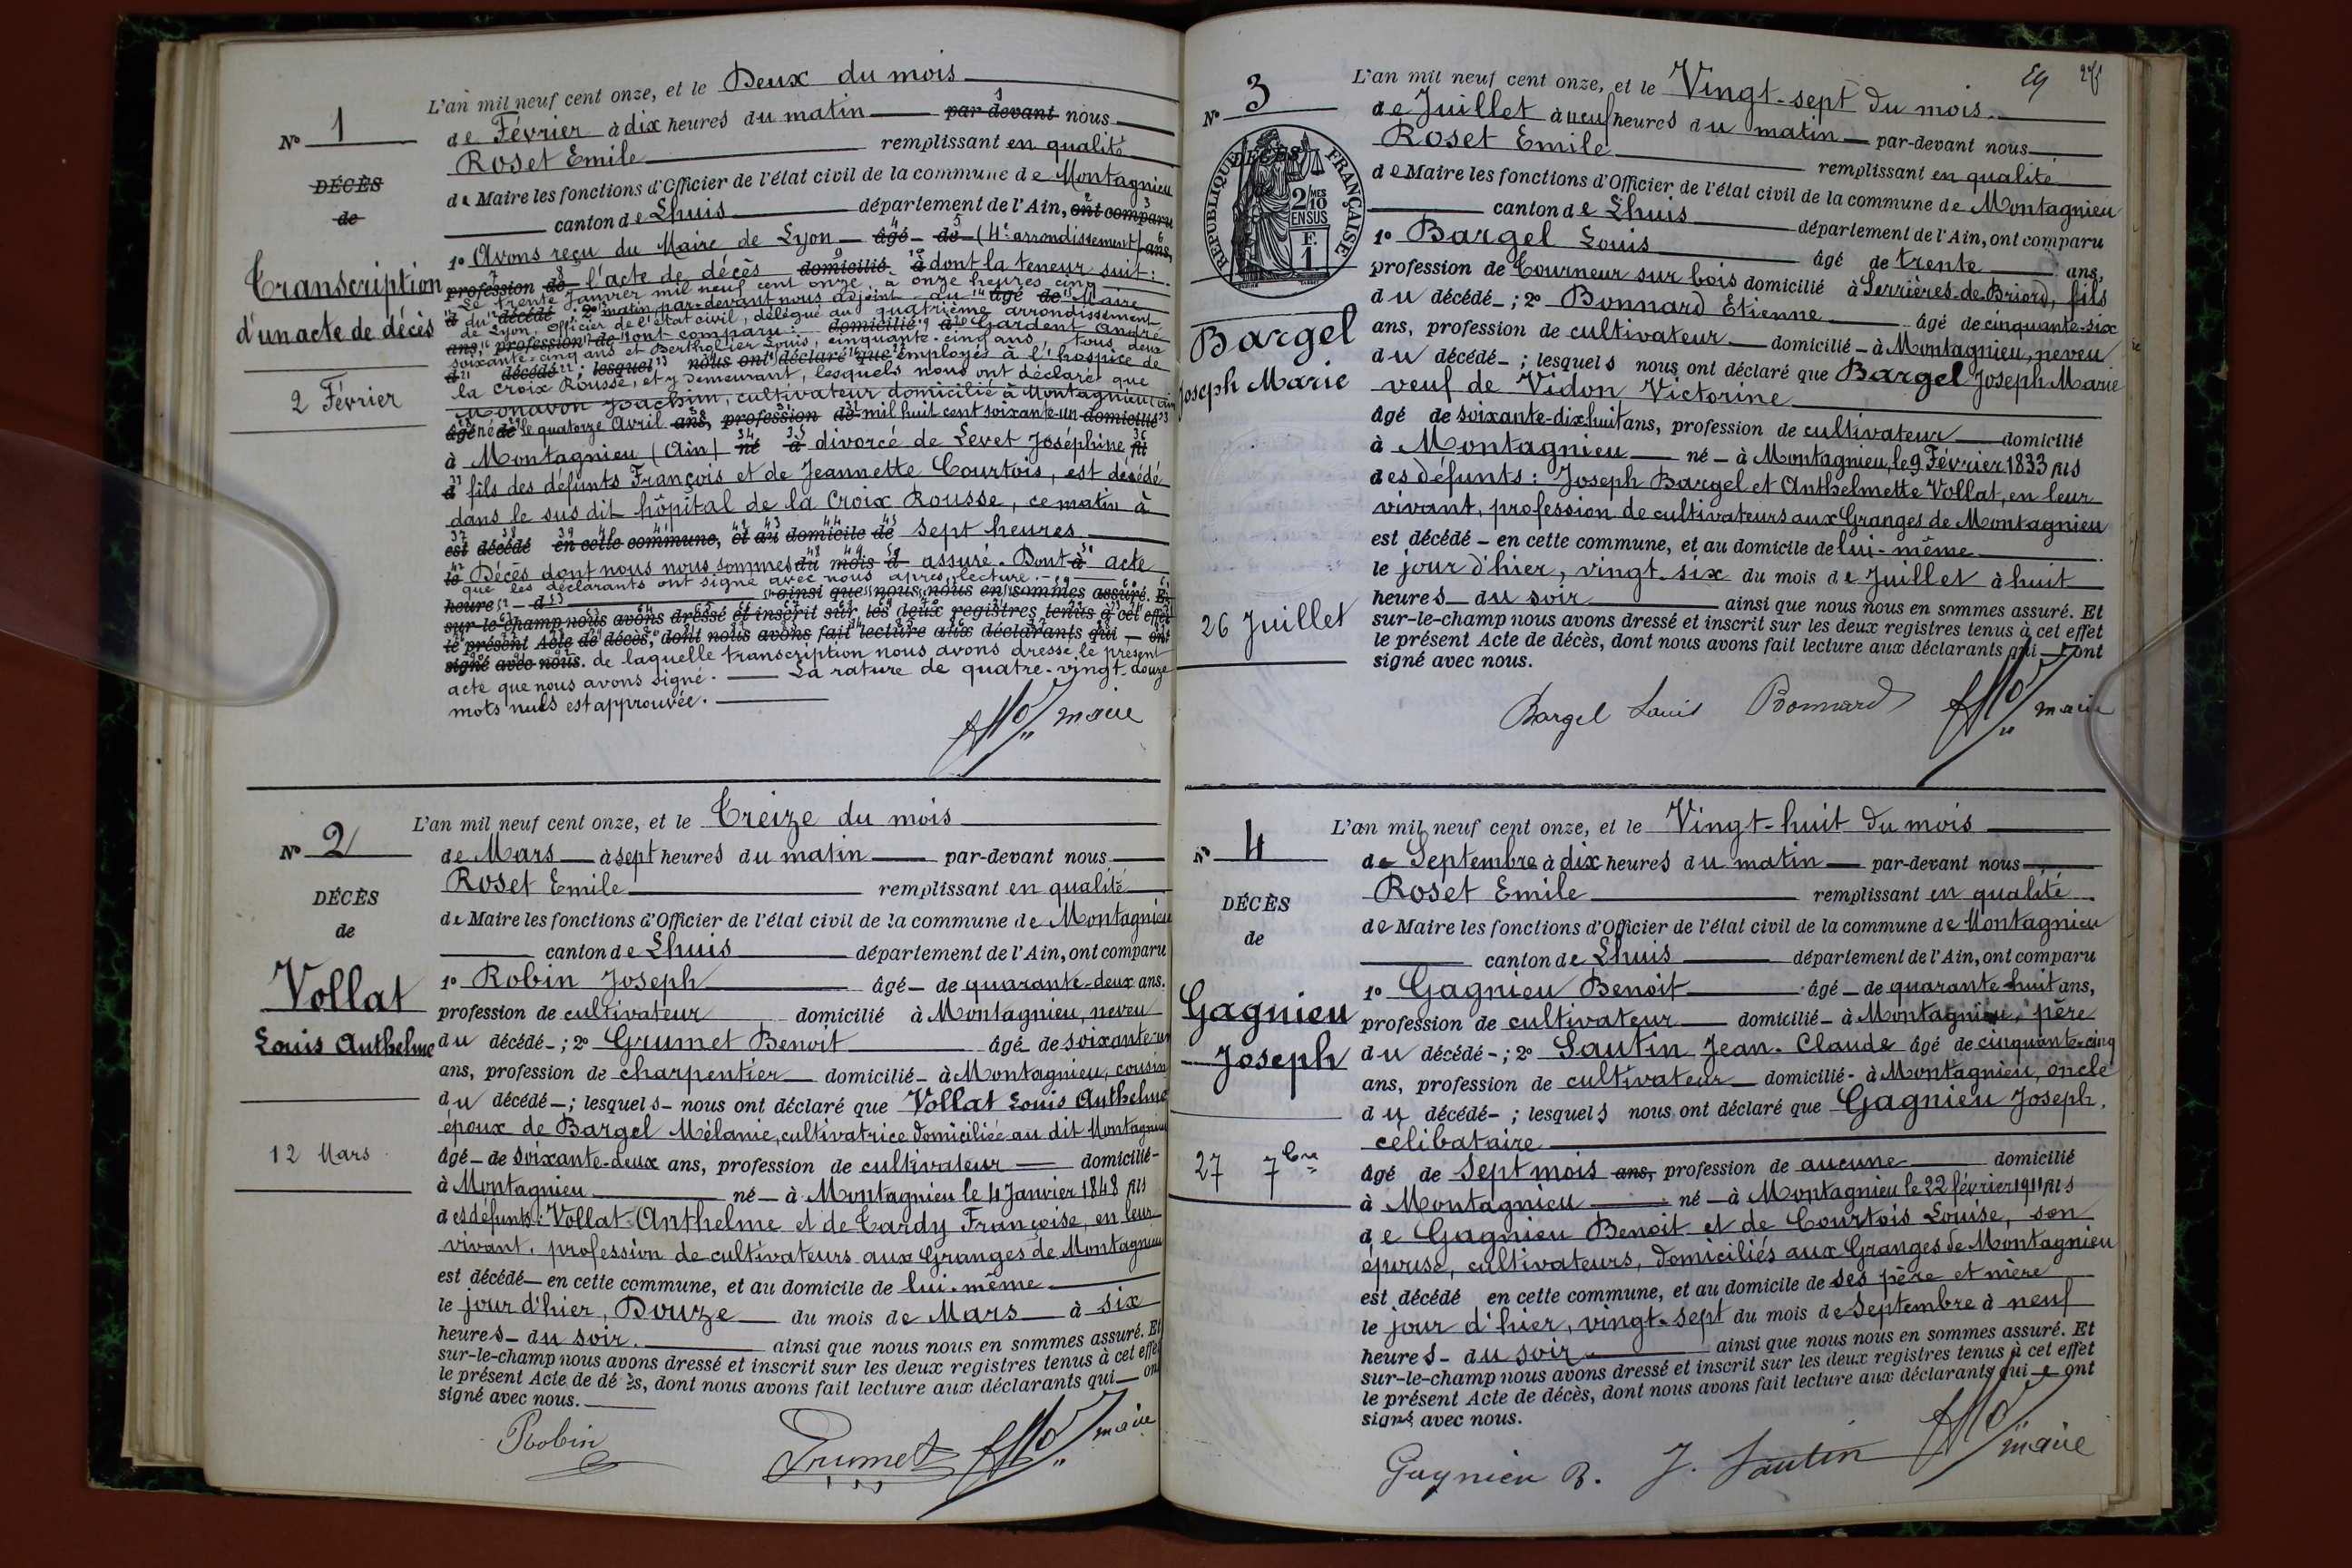 N° 1
DÉCÈS
de
Transcription
d'un acte de décès
2 Février
L'an mil neuf cent onze, et le Deux du mois
de Février à dix heures du matin par-devant nous
Roset Emile remplissant en qualité
de Maire les fonctions d'Officier de l'état civil de la commune de Montagnieu
canton de Lhuis département de l'Ain, ont comparu
1° Avons reçu du Maire de Lyon âgé de (4e arrondissement) ans,
profession de l'acte de décès domicilié à dont la teneur suit :
Le trente Janvier mil neuf cent onze à onze heures cinq
d du décédé ; 2° matin par-devant nous adjoint au âgé de Maire
de Lyon, Officier de l'état civil, délégué au quatrième arrondissement
ans, profession de ont comparu : domicilié à Gardent André
soixante-cinq ans et Berthollier Louis, cinquante-cinq ans, tous deux
d décédé ; lesquel nous ont déclaré que employés à l'hospice de
la Croix Rousse, et y demeurant, lesquels nous ont déclaré que
Monavon Joachim, cultivateur domicilié à Montagnieu (Ain)
âgé né de le quatorze Avril ans, profession de mil huit cent soixante-un domicilié
à Montagnieu (Ain) né à divorcé de Levet Joséphine fil
d fils des défunts François et de Jeannette Courtois, est décédé
dans le susdit hôpital de la Croix Rousse, ce matin à
est décédé en cette commune, et au domicile de sept heures
le Décès dont nous nous sommes du mois d assuré. Dont à acte
que les déclarants ont signé avec nous après lecture.
heure d ainsi que nous nous en sommes assuré. Et
sur-le-champ nous avons dressé et inscrit sur les deux registres tenus à cet effet
le présent Acte de décès, dont nous avons fait lecture aux déclarants qui ont
signé avec nous. de laquelle transcription nous avons dressé le présent
acte que nous avons signé. La rature de quatre-vingt-douze
mots nuls est approuvée.
maire
N° 2
DÉCÈS
de
Vollat
Louis Anthelme
12 Mars
L'an mil neuf cent onze, et le Treize du mois
de Mars à sept heures du matin par-devant nous
Roset Emile remplissant en qualité
de Maire les fonctions d'Officier de l'état civil de la commune de Montagnieu
canton de Lhuis département de l'Ain, ont comparu
1° Robin Joseph âgé de quarante-deux ans.
profession de cultivateur domicilié à Montagnieu, neveu
du décédé ; 2° Grumet Benoit âgé de soixante-un
ans, profession de charpentier domicilié à Montagnieu, cousin
du décédé ; lesquels nous ont déclaré que Vollat Louis Anthelme
époux de Bargel Mélanie, cultivatrice domiciliée au dit Montagnieu
âgé de soixante-deux ans, profession de cultivateur domicilié
à Montagnieu né à Montagnieu le 4 Janvier 1848 fils
des défunts : Vollat Anthelme et de Tardy Françoise, en leur
vivant, profession de cultivateurs aux Granges de Montagnieu
est décédé en cette commune, et au domicile de lui-même
le jour d'hier, Douze du mois de Mars à six
heures du soir. ainsi que nous nous en sommes assuré. Et
sur-le-champ nous avons dressé et inscrit sur les deux registres tenus à cet effet
le présent Acte de décès, dont nous avons fait lecture aux déclarants qui ont
signé avec nous.
Robin Grumet maire
29
N° 3
DÉCÈS
RÉPUBLIQUE FRANÇAISE
2 MES
10
EN SUS
F.
1
Bargel
Joseph Marie
26 Juillet
L'an mil neuf cent onze, et le Vingt-sept du mois.
de Juillet à neuf heures du matin par-devant nous
Roset Emile remplissant en qualité
de Maire les fonctions d'Officier de l'état civil de la commune de Montagnieu
canton de Lhuis département de l'Ain, ont comparu
1° Bargel Louis âgé de trente ans,
profession de Tourneur sur bois domicilié à Serrières-de-Briord, fils
du décédé ; 2° Bonnard Etienne âgé de cinquante-six
ans, profession de cultivateur domicilié à Montagnieu, neveu
du décédé ; lesquels nous ont déclaré que Bargel Joseph Marie
veuf de Vidon Victorine
âgé de soixante-dix huit ans, profession de cultivateur domicilié
à Montagnieu né à Montagnieu, le 9 Février 1833 fils
des défunts : Joseph Bargel et Anthelmette Vollat, en leur
vivant, profession de cultivateurs aux Granges de Montagnieu
est décédé en cette commune, et au domicile de lui-même
le jour d'hier, vingt-six du mois de Juillet à huit
heures du soir ainsi que nous nous en sommes assuré. Et
sur-le-champ nous avons dressé et inscrit sur les deux registres tenus à cet effet
le présent Acte de décès, dont nous avons fait lecture aux déclarants qui ont
signé avec nous.
Bargel Louis Bonnard maire
N° 4
DÉCÈS
de
Gagnieu
Joseph
27 7bre
L'an mil neuf cent onze, et le Vingt-huit du mois
de Septembre à dix heures du matin par-devant nous
Roset Emile remplissant en qualité
de Maire les fonctions d'Officier de l'état civil de la commune de Montagnieu
canton de Lhuis département de l'Ain, ont comparu
1° Gagnieu Benoit âgé de quarante-huit ans,
profession de cultivateur domicilié à Montagnieu, père
du décédé ; 2° Sautin Jean-Claude âgé de cinquante-cinq
ans, profession de cultivateur domicilié à Montagnieu, oncle
du décédé ; lesquels nous ont déclaré que Gagnieu Joseph,
célibataire
âgé de Sept mois ans, profession de aucune domicilié
à Montagnieu né à Montagnieu le 22 février 1911 fils
de Gagnieu Benoit et de Courtois Louise, son
épouse, cultivateurs, domiciliés aux Granges de Montagnieu
est décédé en cette commune, et au domicile de ses père et mère
le jour d'hier, vingt-sept du mois de Septembre à neuf
heures du soir ainsi que nous nous en sommes assuré. Et
sur-le-champ nous avons dressé et inscrit sur les deux registres tenus à cet effet
le présent Acte de décès, dont nous avons fait lecture aux déclarants qui ont
signé avec nous.
Gagnieu B. J. Sautin maire